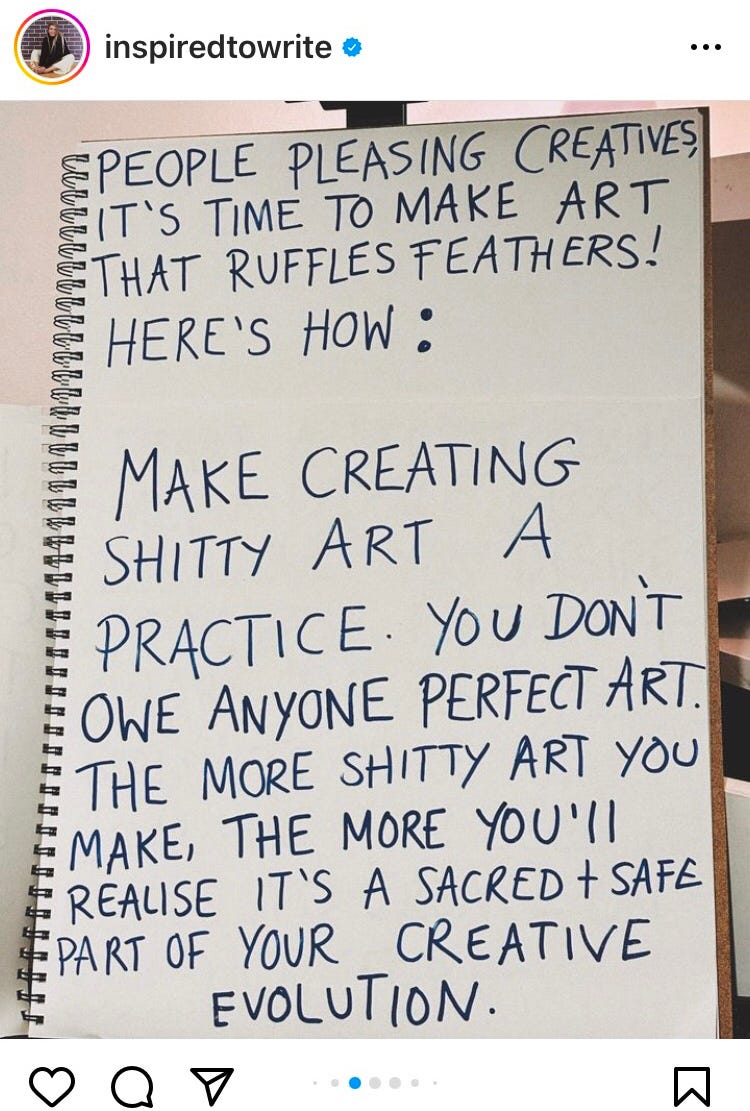 inspiredtowrite
PEOPLE PLEASING CREATIVES,
IT'S TIME TO MAKE ART
THAT RUFFLES FEATHERS!
HERE'S HOW :
MAKE CREATING
SHITTY ART A
PRACTICE. YOU DON'T
OWE ANYONE PERFECT ART.
THE MORE SHITTY ART YOU
MAKE, THE MORE YOU'll
REALISE IT'S A SACRED + SAFE
PART OF YOUR CREATIVE
EVOLUTION.